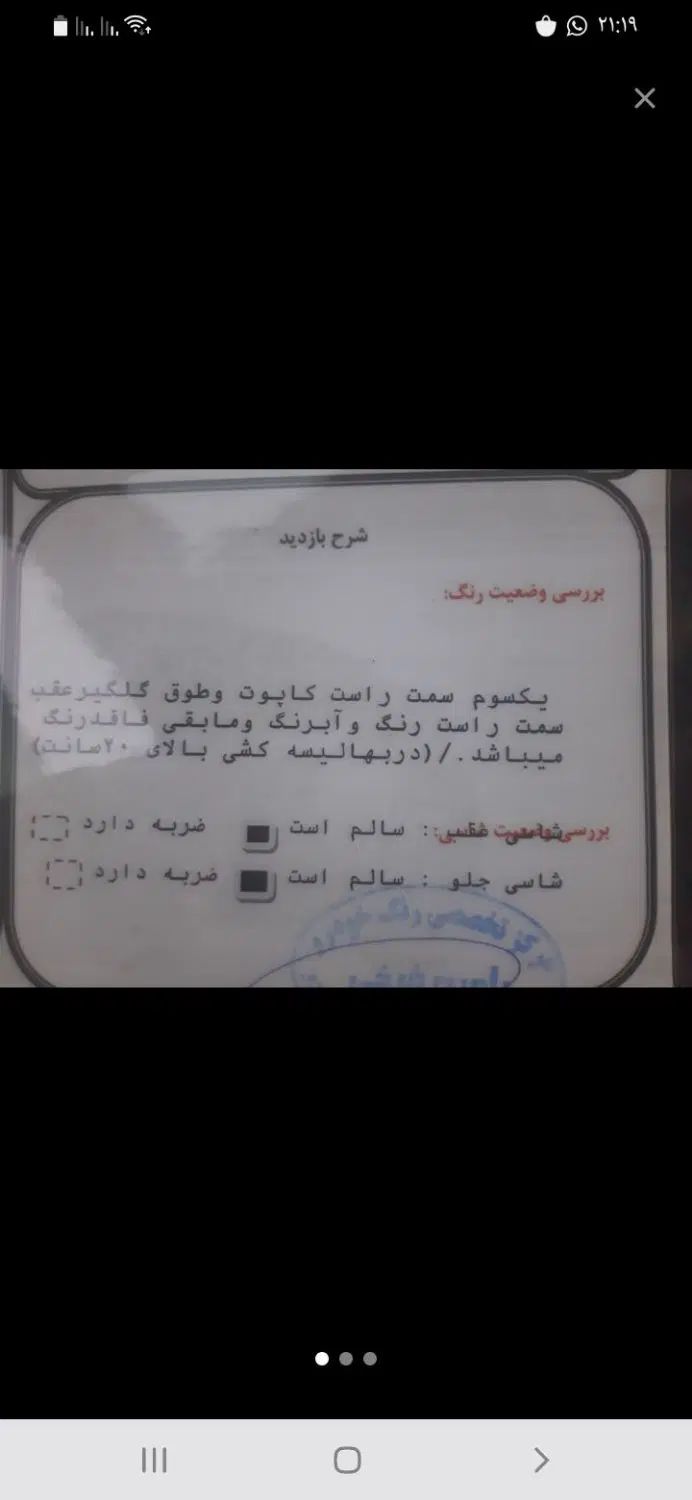 ۲۱:۱۹
شرح بازدید
بررسی وضعیت رنگ:
یکسوم سمت راست کاپوت وطوق گلگیرعقب
سمت راست رنگ وآبرنگ ومابقی فاقدرنگ
میباشد./(دربهالیسه کشی بالای ۲۰سانت)
بررسی وضعیت شاسی:
شاسی عقب : سالم است ضربه دارد
شاسی جلو : سالم است ضربه دارد
مرکز تخصصی رنگ خودرو